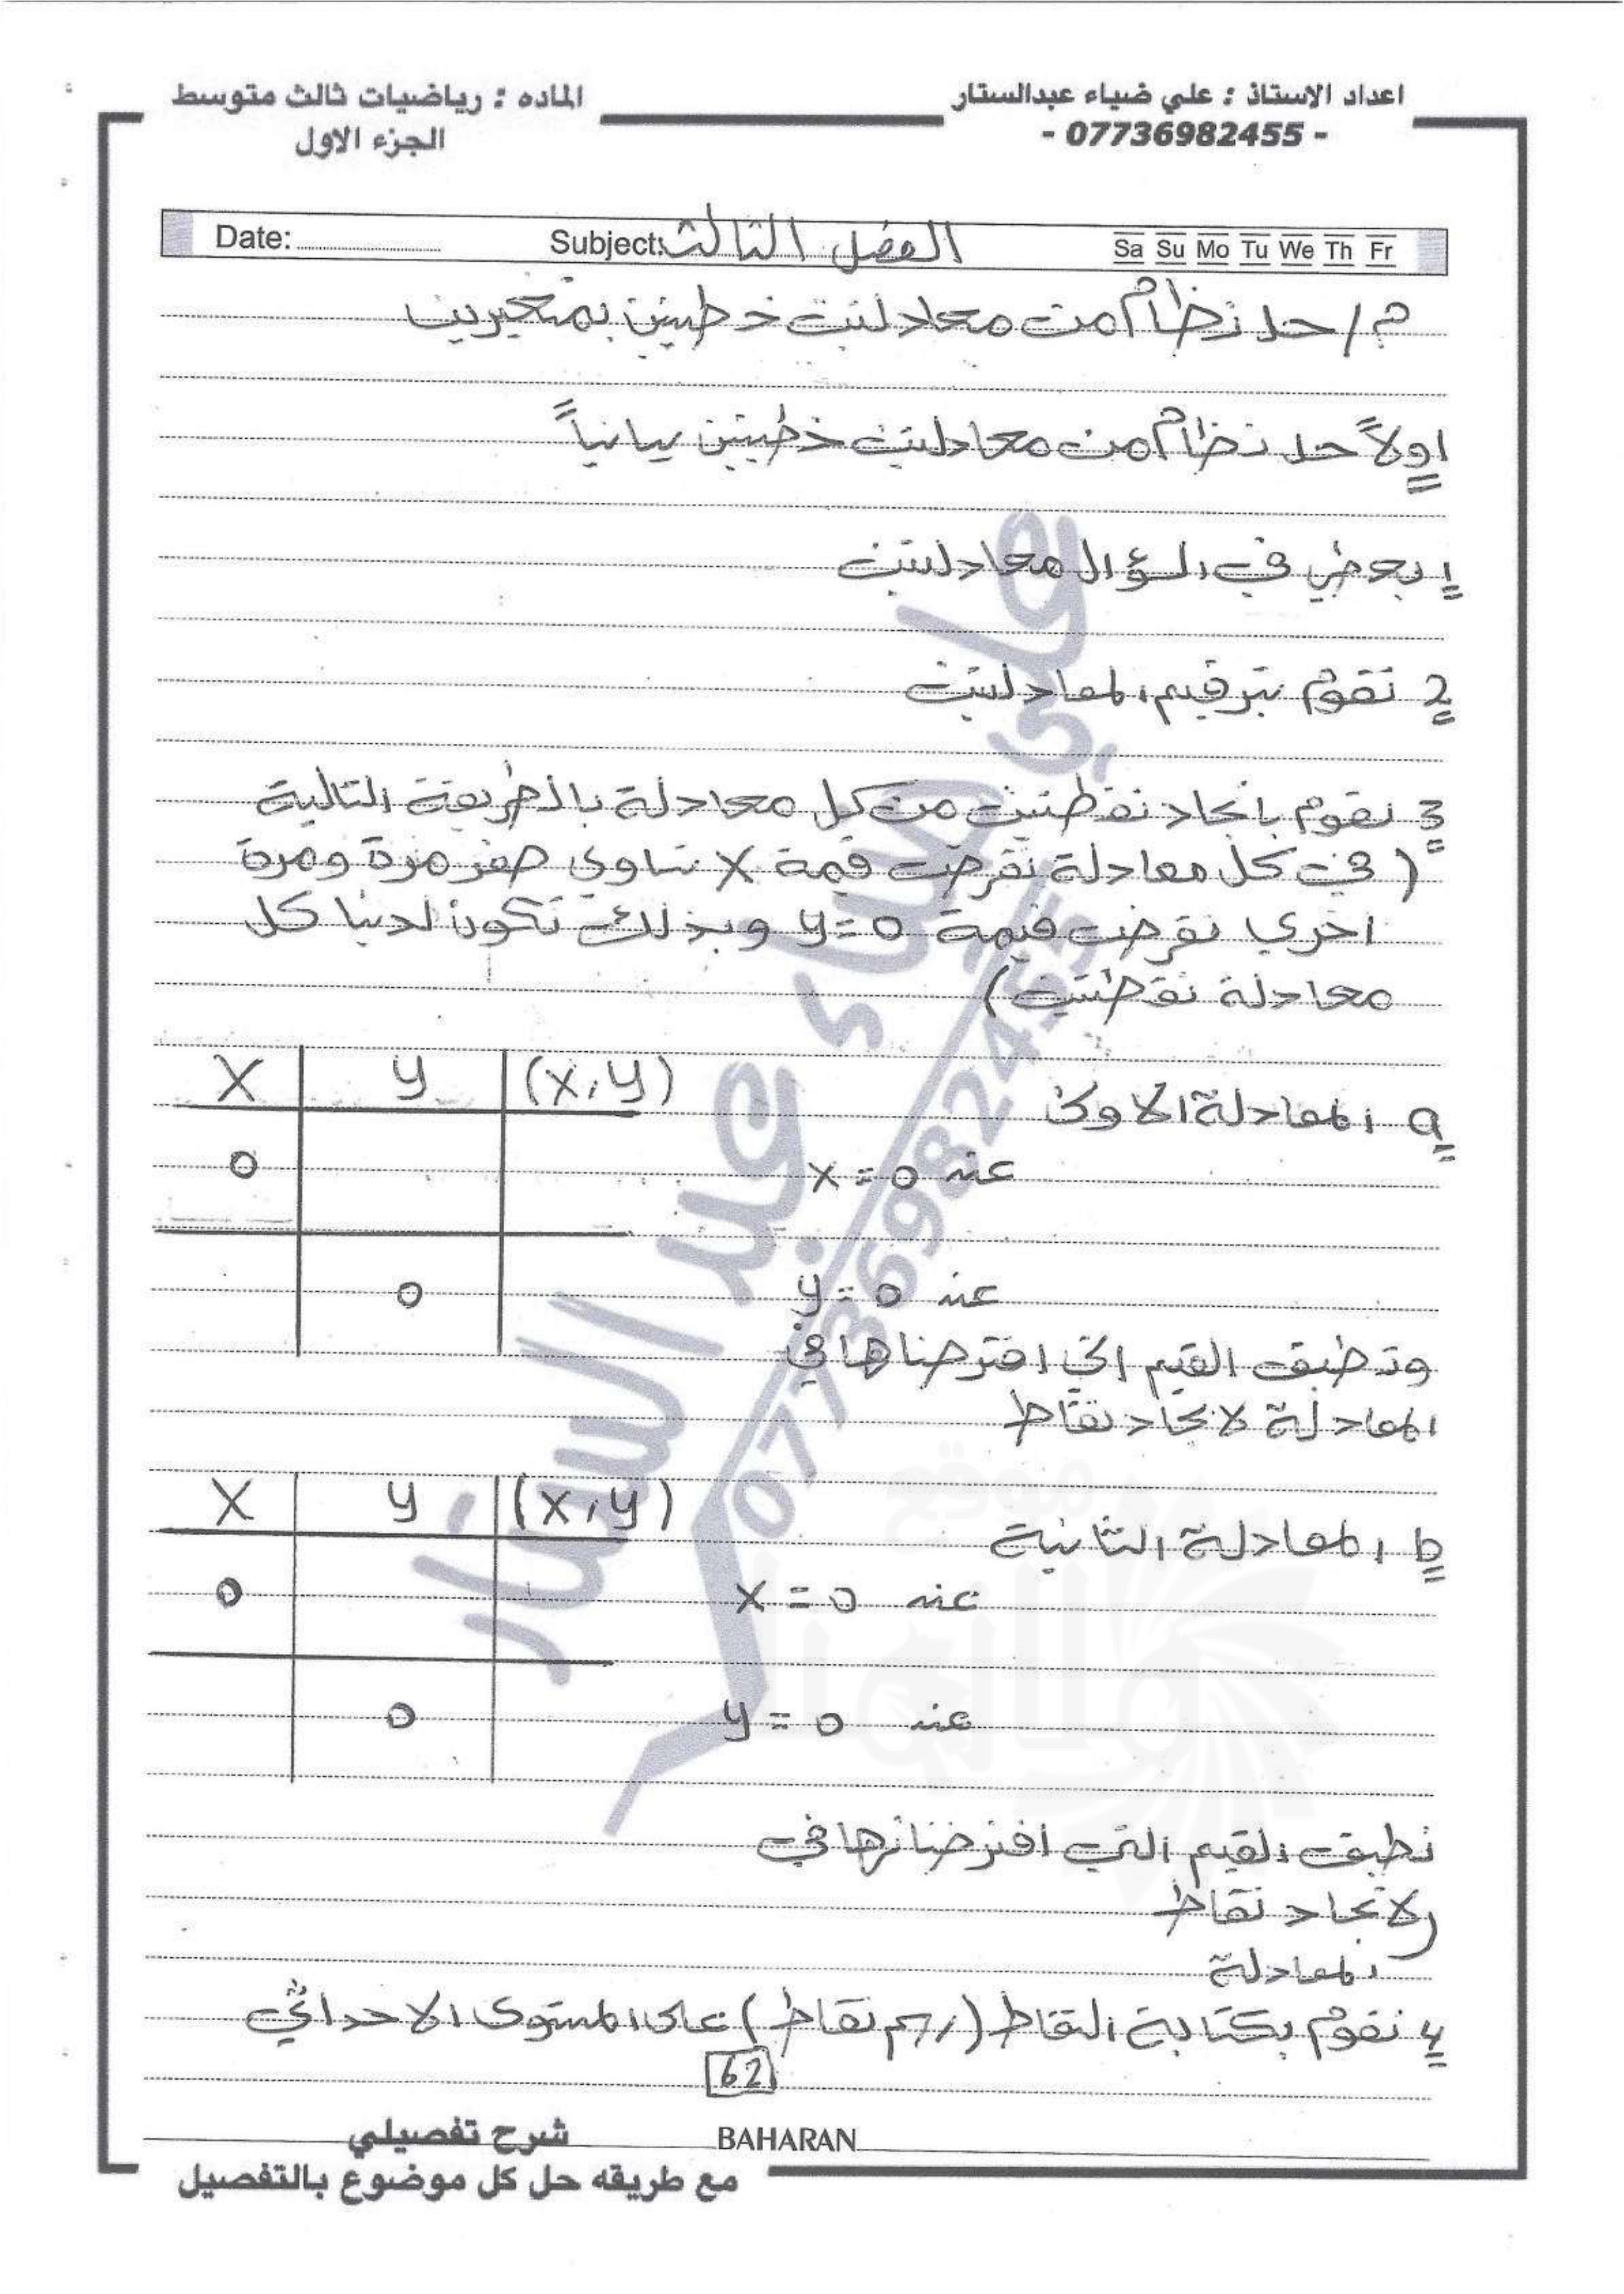 اعداد الاستاذ : علي ضياء عبدالستار
- 07736982455 -
الماده : رياضيات ثالث متوسط
الجزء الاول
Date: Subject: الفصل الثالث Sa Su Mo Tu We Th Fr
م/ حل نظام من معادلتين خطيتين بمتغيرين
اولاً حل نظام من معادلتين خطيتين بيانياً
1 يعطي في السؤال معادلتين
2 نقوم بترقيم المعادلتين
3 نقوم بايجاد نقطتين من كل معادلة بالطريقة التالية
( في كل معادلة نفرض قيمة X تساوي صفر مرة ومرة
اخرى نفرض قيمة y=0 وبذلك تكون لدينا كل
معادلة نقطتين)
a المعادلة الاولى
X y (x,y)
عند x=0
0
عند y=0
0
ونطبق القيم التي افترضناها في
المعادلة لايجاد نقاط
b المعادلة الثانية
X y (x,y)
عند x=0
0
عند y=0
0
نطبق القيم التي افترضناها في
لايجاد نقاط
المعادلة
4 نقوم بكتابة النقاط (رسم نقاط) على المستوى الاحداثي
62
BAHARAN
شرح تفصيلي
مع طريقه حل كل موضوع بالتفصيل
علي ضياء عبد الستار
07736982455